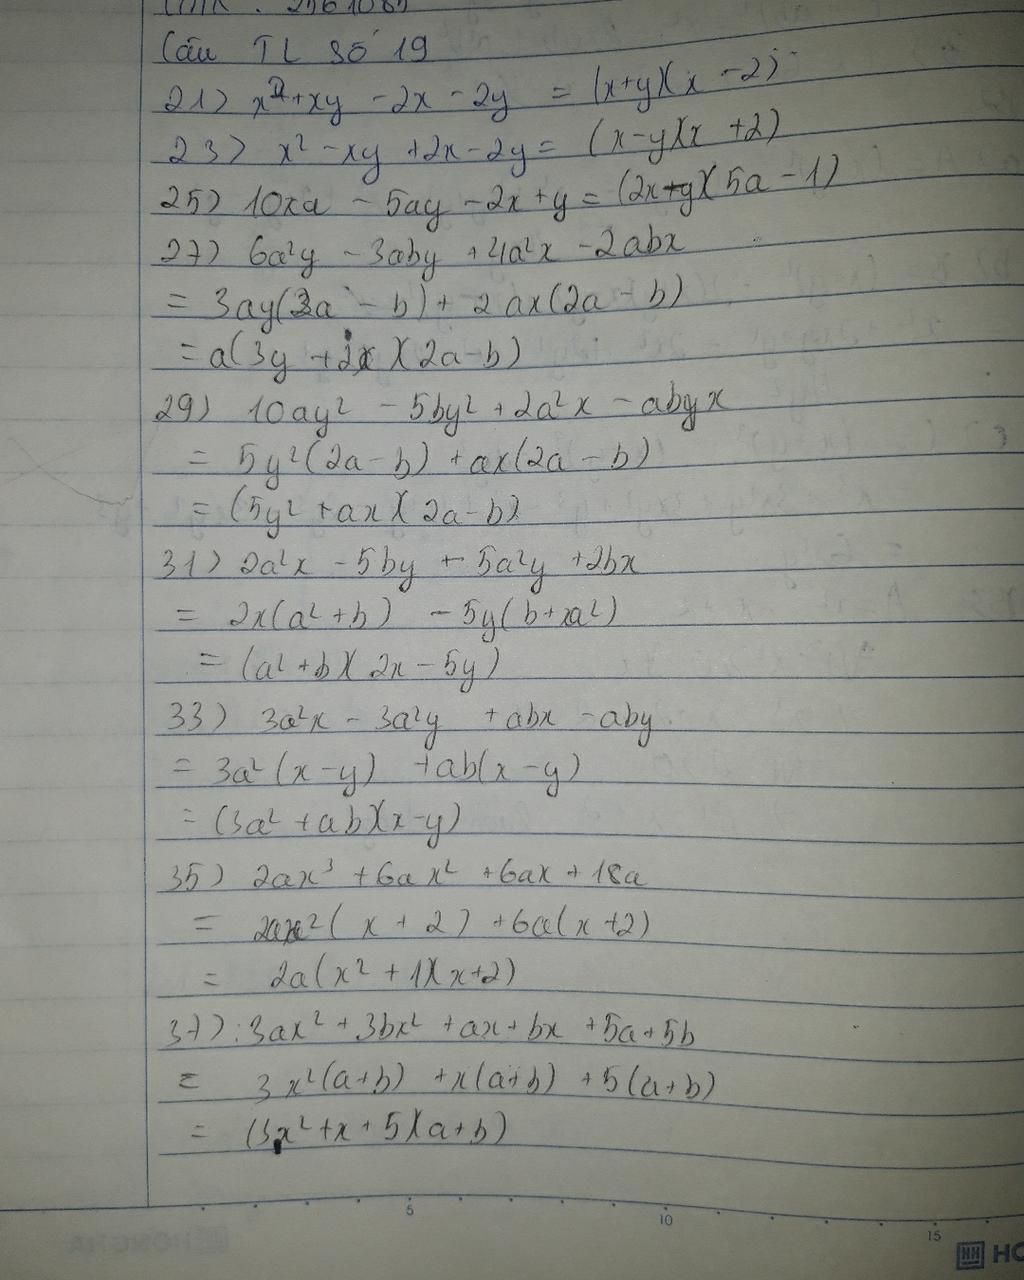 Câu TL số 19
21) x² + xy - 2x - 2y = (x+y)(x - 2)
23) x² - xy + 2x - 2y = (x-y)(x + 2)
25) 10xa - 5ay - 2x + y = (2x+y)(5a - 1)
27) 6a²y - 3aby + 4a²x - 2abx
= 3ay(2a - b) + 2ax(2a - b)
= a(3y + 2x)(2a - b)
29) 10ay² - 5by² + 2a²x - abyx
= 5y²(2a - b) + ax(2a - b)
= (5y² + ax)(2a - b)
31) 2a²x - 5by - 5a²y + 2bx
= 2x(a² + b) - 5y(b + a²)
= (a² + b)(2x - 5y)
33) 3a²x - 3a²y + abx - aby
= 3a²(x - y) + ab(x - y)
= (3a² + ab)(x - y)
35) 2ax³ + 6ax² + 6ax + 18a
= 2ax²(x + 2) + 6a(x + 2)
= 2a(x² + 1)(x + 2)
37) 3ax² + 3bx² + ax + bx + 5a + 5b
= 3x²(a + b) + x(a + b) + 5(a + b)
= (3x² + x + 5)(a + b)
5 10 15
HO